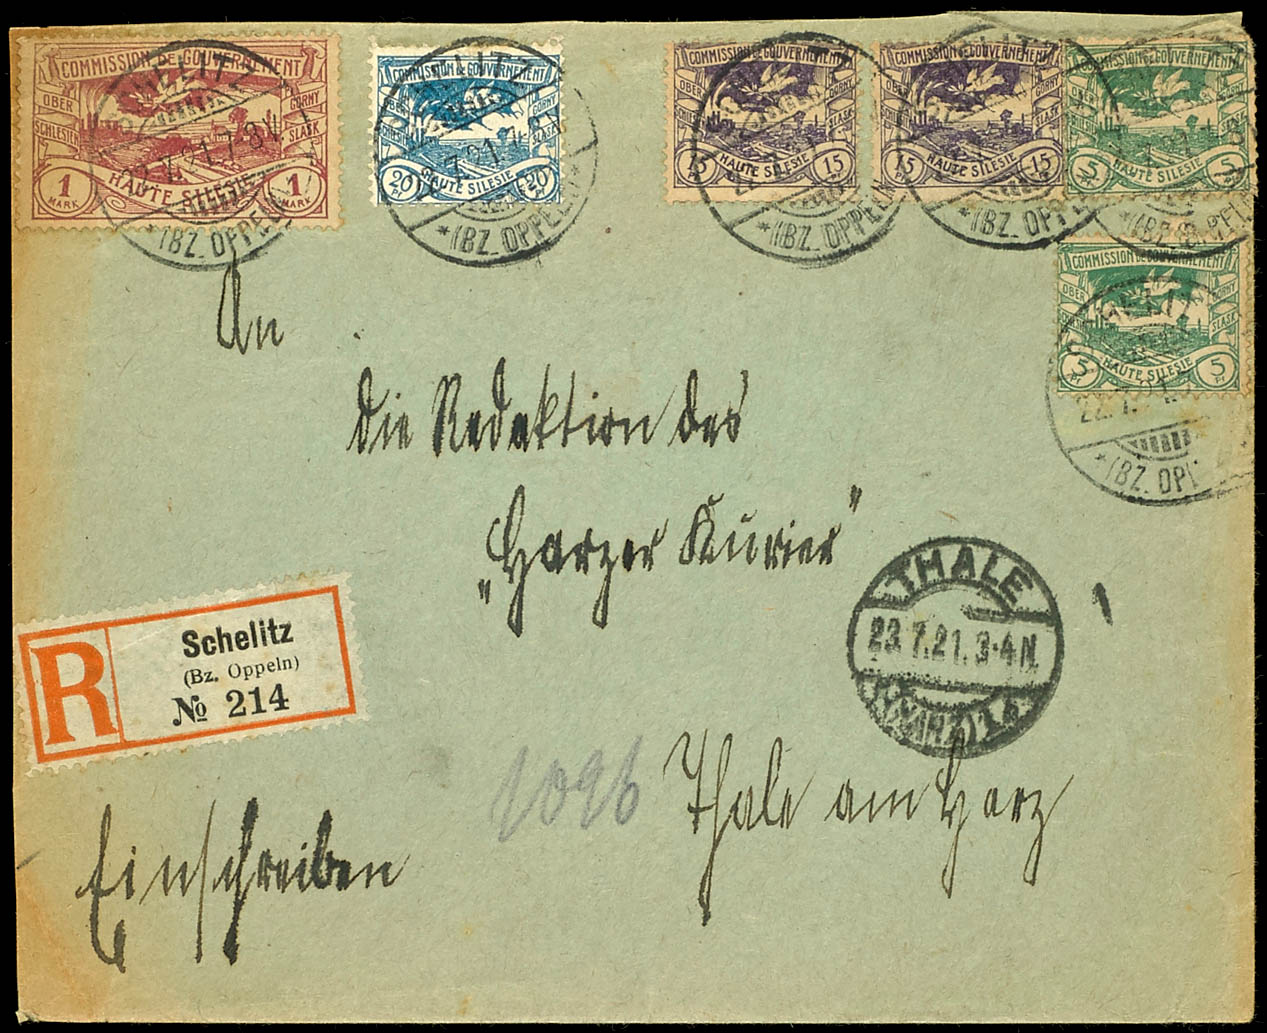 COMMISSION DE GOUVERNEMENT
OBER SCHLESIEN
GORNY SLĄSK
1 MARK
HAUTE SILESIE
1 MARK
COMMISSION DE GOUVERNEMENT
OBER
GORNY SLĄSK
20 Pf
HAUTE SILESIE
20
COMMISSION DE GOUVERNEMENT
OBER
GORNY SLĄSK
15
HAUTE SILESIE
15
COMMISSION DE GOUVERNEMENT
OBER
GORNY SLĄSK
15
HAUTE SILESIE
15
COMMISSION DE GOUVERNEMENT
5
HAUTE SILESIE
5
COMMISSION DE GOUVERNEMENT
OBER
GORNY SLĄSK
5 Pf
HAUTE SILESIE
5 Pf
SCHELITZ
22.7.21.7-8V.
*(BZ. OPPELN)*
*(BZ. OPPELN)*
*(BZ. OPPELN)
*(BZ. OPPELN)
22.7.
*(BZ. OP
An
die Redaktion des
„Harzer Kurier"
THALE
23.7.21.3-4N.
(HARZ)1a
R
Schelitz
(Bz. Oppeln)
№ 214
1096
Thale am Harz
Einschreiben